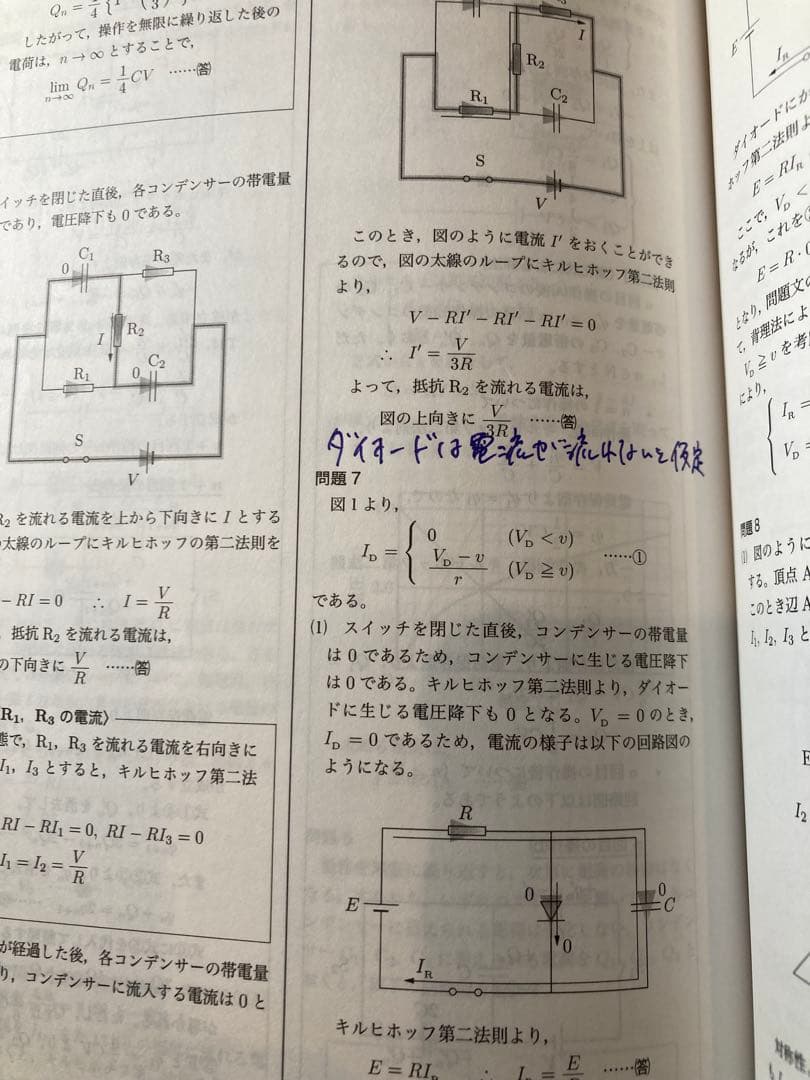 したがって，操作を無限に繰り返した後の
電荷は，n → ∞ とすることで，
lim Qn = 1/4 CV ……(答)
n→∞
イッチを閉じた直後，各コンデンサーの帯電量
であり，電圧降下も 0 である。
C1
0
R3
R2
I
C2
0
R1
S
V
R2 を流れる電流を上から下向きに I とする
太線のループにキルヒホッフの第二法則を
− RI = 0 ∴ I = V/R
，抵抗 R2 を流れる電流は，
の下向きに V/R ……(答)
R1，R3 の電流〉
態で，R1，R3 を流れる電流を右向きに
I1，I3 とすると，キルヒホッフ第二法
RI − RI1 = 0, RI − RI3 = 0
I1 = I2 = V/R
が経過した後，各コンデンサーの帯電量
り，コンデンサーに流入する電流は 0 と
I
R2
R1
C2
S
V
このとき，図のように電流 I′ をおくことができ
るので，図の太線のループにキルヒホッフ第二法則
より，
V − RI′ − RI′ − RI′ = 0
∴ I′ = V/3R
よって，抵抗 R2 を流れる電流は，
図の上向きに V/3R ……(答)
ダイオードは電流が流れないと仮定
問題 7
図 1 より，
ID = { 0 (VD < v)
(VD − v)/r (VD ≧ v) ……①
である。
(1) スイッチを閉じた直後，コンデンサーの帯電量
は 0 であるため，コンデンサーに生じる電圧降下
は 0 である。キルヒホッフ第二法則より，ダイオー
ドに生じる電圧降下も 0 となる。VD = 0 のとき，
ID = 0 であるため，電流の様子は以下の回路図の
ようになる。
R
E
0
0
0
C
IR
キルヒホッフ第二法則より，
E = RIR
……(答)
E
IR
ダイオードにか
ホッフ第二法則よ
E = RIR
ここで，VD <
なるが，これを
E = R · 0
となり，問題文の
て，背理法によ
VD ≧ v を考
により，
IR =
VD =
問題 8
(1) 図のように
する。頂点 A
このとき辺 A
I1, I2, I3 と
I2
対称性